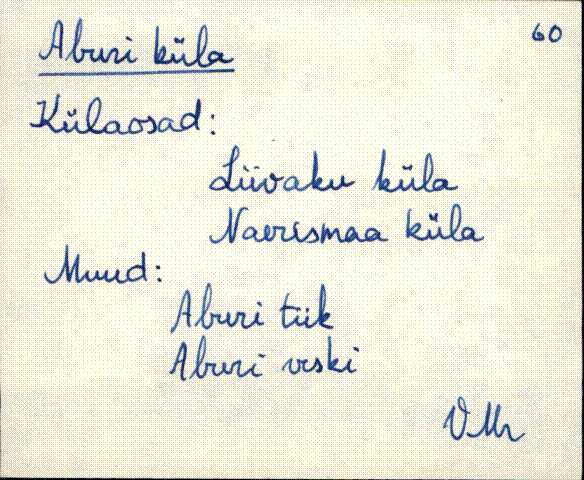 60
Aburi küla
Külaosad:
Liivaku küla
Naerismaa küla
Muud:
Aburi tiik
Aburi veski
VMr